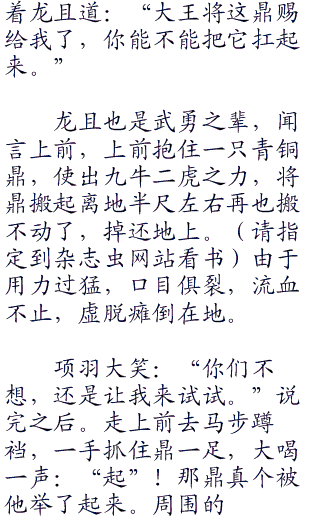 着龙且道：“大王将这鼎赐
给我了，你能不能把它扛起
来。”
龙且也是武勇之辈，闻
言上前，上前抱住一只青铜
鼎，使出九牛二虎之力，将
鼎搬起离地半尺左右再也搬
不动了，掉还地上。（请指
定到杂志虫网站看书）由于
用力过猛，口目俱裂，流血
不止，虚脱瘫倒在地。
项羽大笑：“你们不
想，还是让我来试试。”说
完之后。走上前去马步蹲
裆，一手抓住鼎一足，大喝
一声：“起”！那鼎真个被
他举了起来。周围的